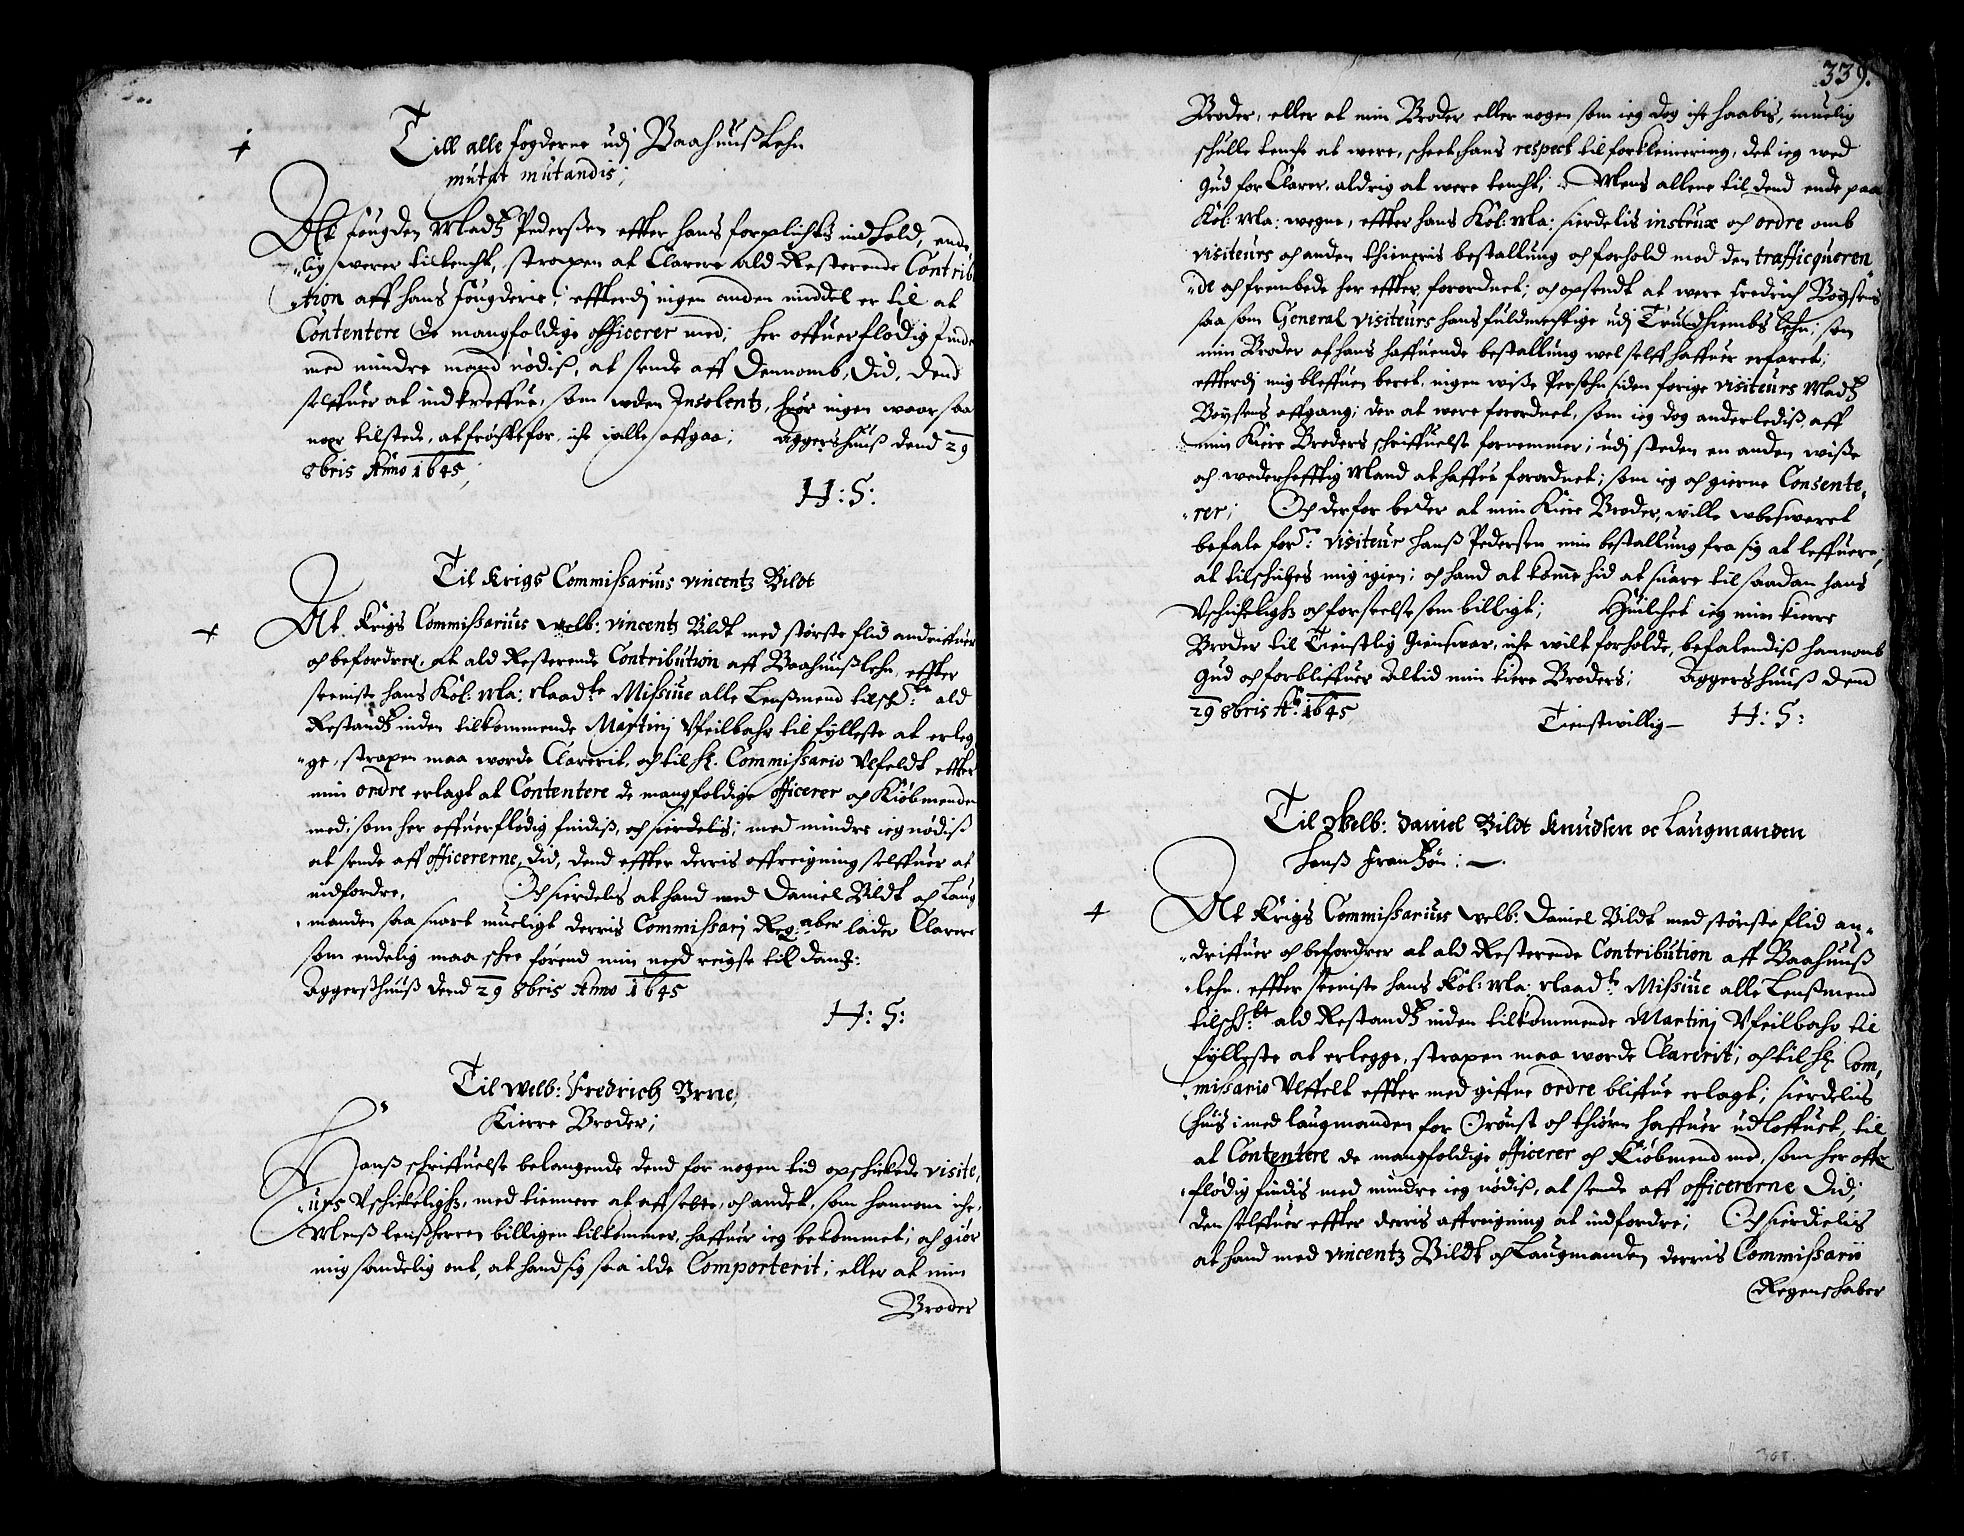 Till alle fogderne udj Baahuußlehn
mutat mutandis;
At fougden Madtz Pederßen effter hans forplichts indhold, ende,
,,lig werer tiltencht, strapen at Clarere ald Resterende Contribu
,,tion aff hans fougderie; effterdj ingen anden middel er til at
Contentere de mangfoldige officerer med; her offuerflødig findes
med mindre mand nødiß, at sende aff dennomb, did, dend
selffuer at inddreffue, som uden Insolentz, huor ingen waar saa
noer tilstede, at frøchte for, iche wille affgaa; Aggershuuß dend 29
8bris Anno 1645;
H: S:
Til Krigs Commissarius vincentz Bildt
At Krigs Commissarius welb: vincentz Bildt med største flid andriffuer
och befordrer, at ald Resterende Contribution aff Baahuußlehn, effter
seeniste hans Kol: Ma: Naadte Missiue alle Lenßmend tilschr: ald
Restandtz inden tilkommende Martinj Ufeilbahr til fylleste at erleg
,,ge, strapen maa worde Clarerit, och til H: Commissario Ulfeldt effter
min ordre erlagt at Contentere de mangfoldige officerer och Kiøbmenden
med; som her offuerflødig findiß, och sierdelis; med mindre ieg nødiß
at sende aff officererne, did, dend effter derris affreigning selffuer at
indfordre. Och sierdelis at hand med Daniel Bildt och Laug
manden saa snart mueligt derris Commissarj Reg:aber lader Clarere
som endelig maa schee førend min ned reigse til Danm:
Aggershuuß dend 29 8bris Anno 1645
H: S:
Til welb: Fredrich Urne,
Kierre Broder;
Hanß schriffuelse belangende dend for nogen tid opschickede visite,
,,urs Uschickeligh:, med tiennere at affsette, och andet, som hannom iche,
Menß lenßherren billigen tilkommer, haffuer ieg bekommet; och giør
mig sandelig ont, at hand sig saa ilde Comporterit; eller at min
Broder
339.
Broder, eller at min Broder eller nogen som ieg dog iche haabis, muelig
schulle tenche at were, scheet hans respect til forkleinering, det ieg wed
Gud for Clarer, aldrig at were tencht; Mens allene til dend ende paa
Kol: Ma: wegne, effter hans Kol: Ma: sierdelis instrux och ordre omb
visiteurs och anden thienneris bestallung och forhold med den trafficqueren
,,de och frembede her effter, forordnet; och opsendt at were Fredrich Boysens
saa som General visiteurs hans fuldmechtige udj Trundhiembs lehn; som
min Broder af hans haffuende bestallung wel selff haffuer erfaret;
effterdj mig bleffuen beret, ingen wiße Persohn siden forige visiteurs Madtz
Boysens affgang; der at were forordnet, som ieg dog anderlediß aff
min Kiere Broders schriffuelse fornemmer; udj steden en anden wiße
och wederhefftig Mand at haffue forordnet; som ieg och gierne Consente,
,,rer; Och derfor beder at min Kiere Broder, wille ubesweret
befale for:ne visiteur Hanß Pedersen min bestallung fra sig at leffuere
at tilschickes mig igien; och hand at komme hid at suare til saadan hans
Uschickeligh: och forseelse som billigt; Huilchet ieg min kierre
Broder til Tienstlig Giensuar, iche wilt forholde, befalendiß hannomb
Gud och forbliffuer altid min kiere Broders; Aggershuuß dend
29 8bris Ao 1645
Tienstwillig H: S:
Til Welb: Daniel Bildt Knudsen oc Laugmanden
Hanß Frantzøn:
At Krigs Commissarius welb: Daniel Bildt med største flid an,,
,,driffuer och befordrer at ald Resterende Contribution aff Baahuuß
lehn, effter seeniste hans Kol: Ma: Naadte Missiue alle Lenßmend
tilschr:te ald Restandtz inden tilkommende Martinj Ufeilbahr til
fylleste at erlegge, strapen maa worde Clarerit; och til H: Com,
missario Ulffelt effter med giffne ordre bliffue erlagt; sierdelis
huis i med laugmanden for Oroust och thiørn haffuer udloffuet, til
at Contentere de mangfoldige officerer och Kiøbmend med, som her offr
flødig findis med mindre ieg nødiß, at sende aff officererne did;
den selffuer effter derris affreigning at indfordre; Och sierdielis
at hand med vincentz Bildt och Laugmanden derris Commissarii
Regenschaber